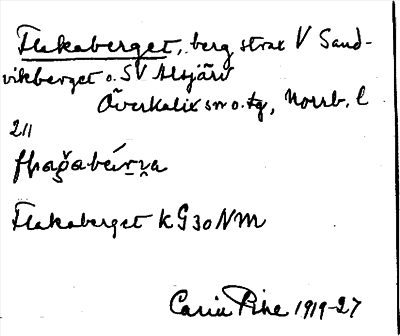 Flakaberget, berg strax V Sand-
vikberget o. SV Alsjärv
Överkalix sn o. tg, Norrb. l
211
Flakaberget KG30NM
Carin Pihl 1919-27